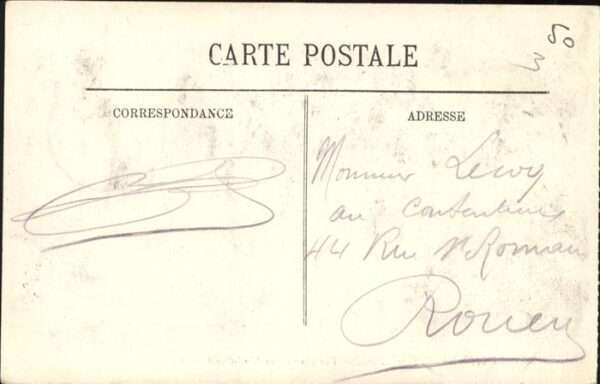 50
CARTE POSTALE
CORRESPONDANCE
ADRESSE
Monsieur Lewy
au Contentieux
44 Rue St Romain
Rouen